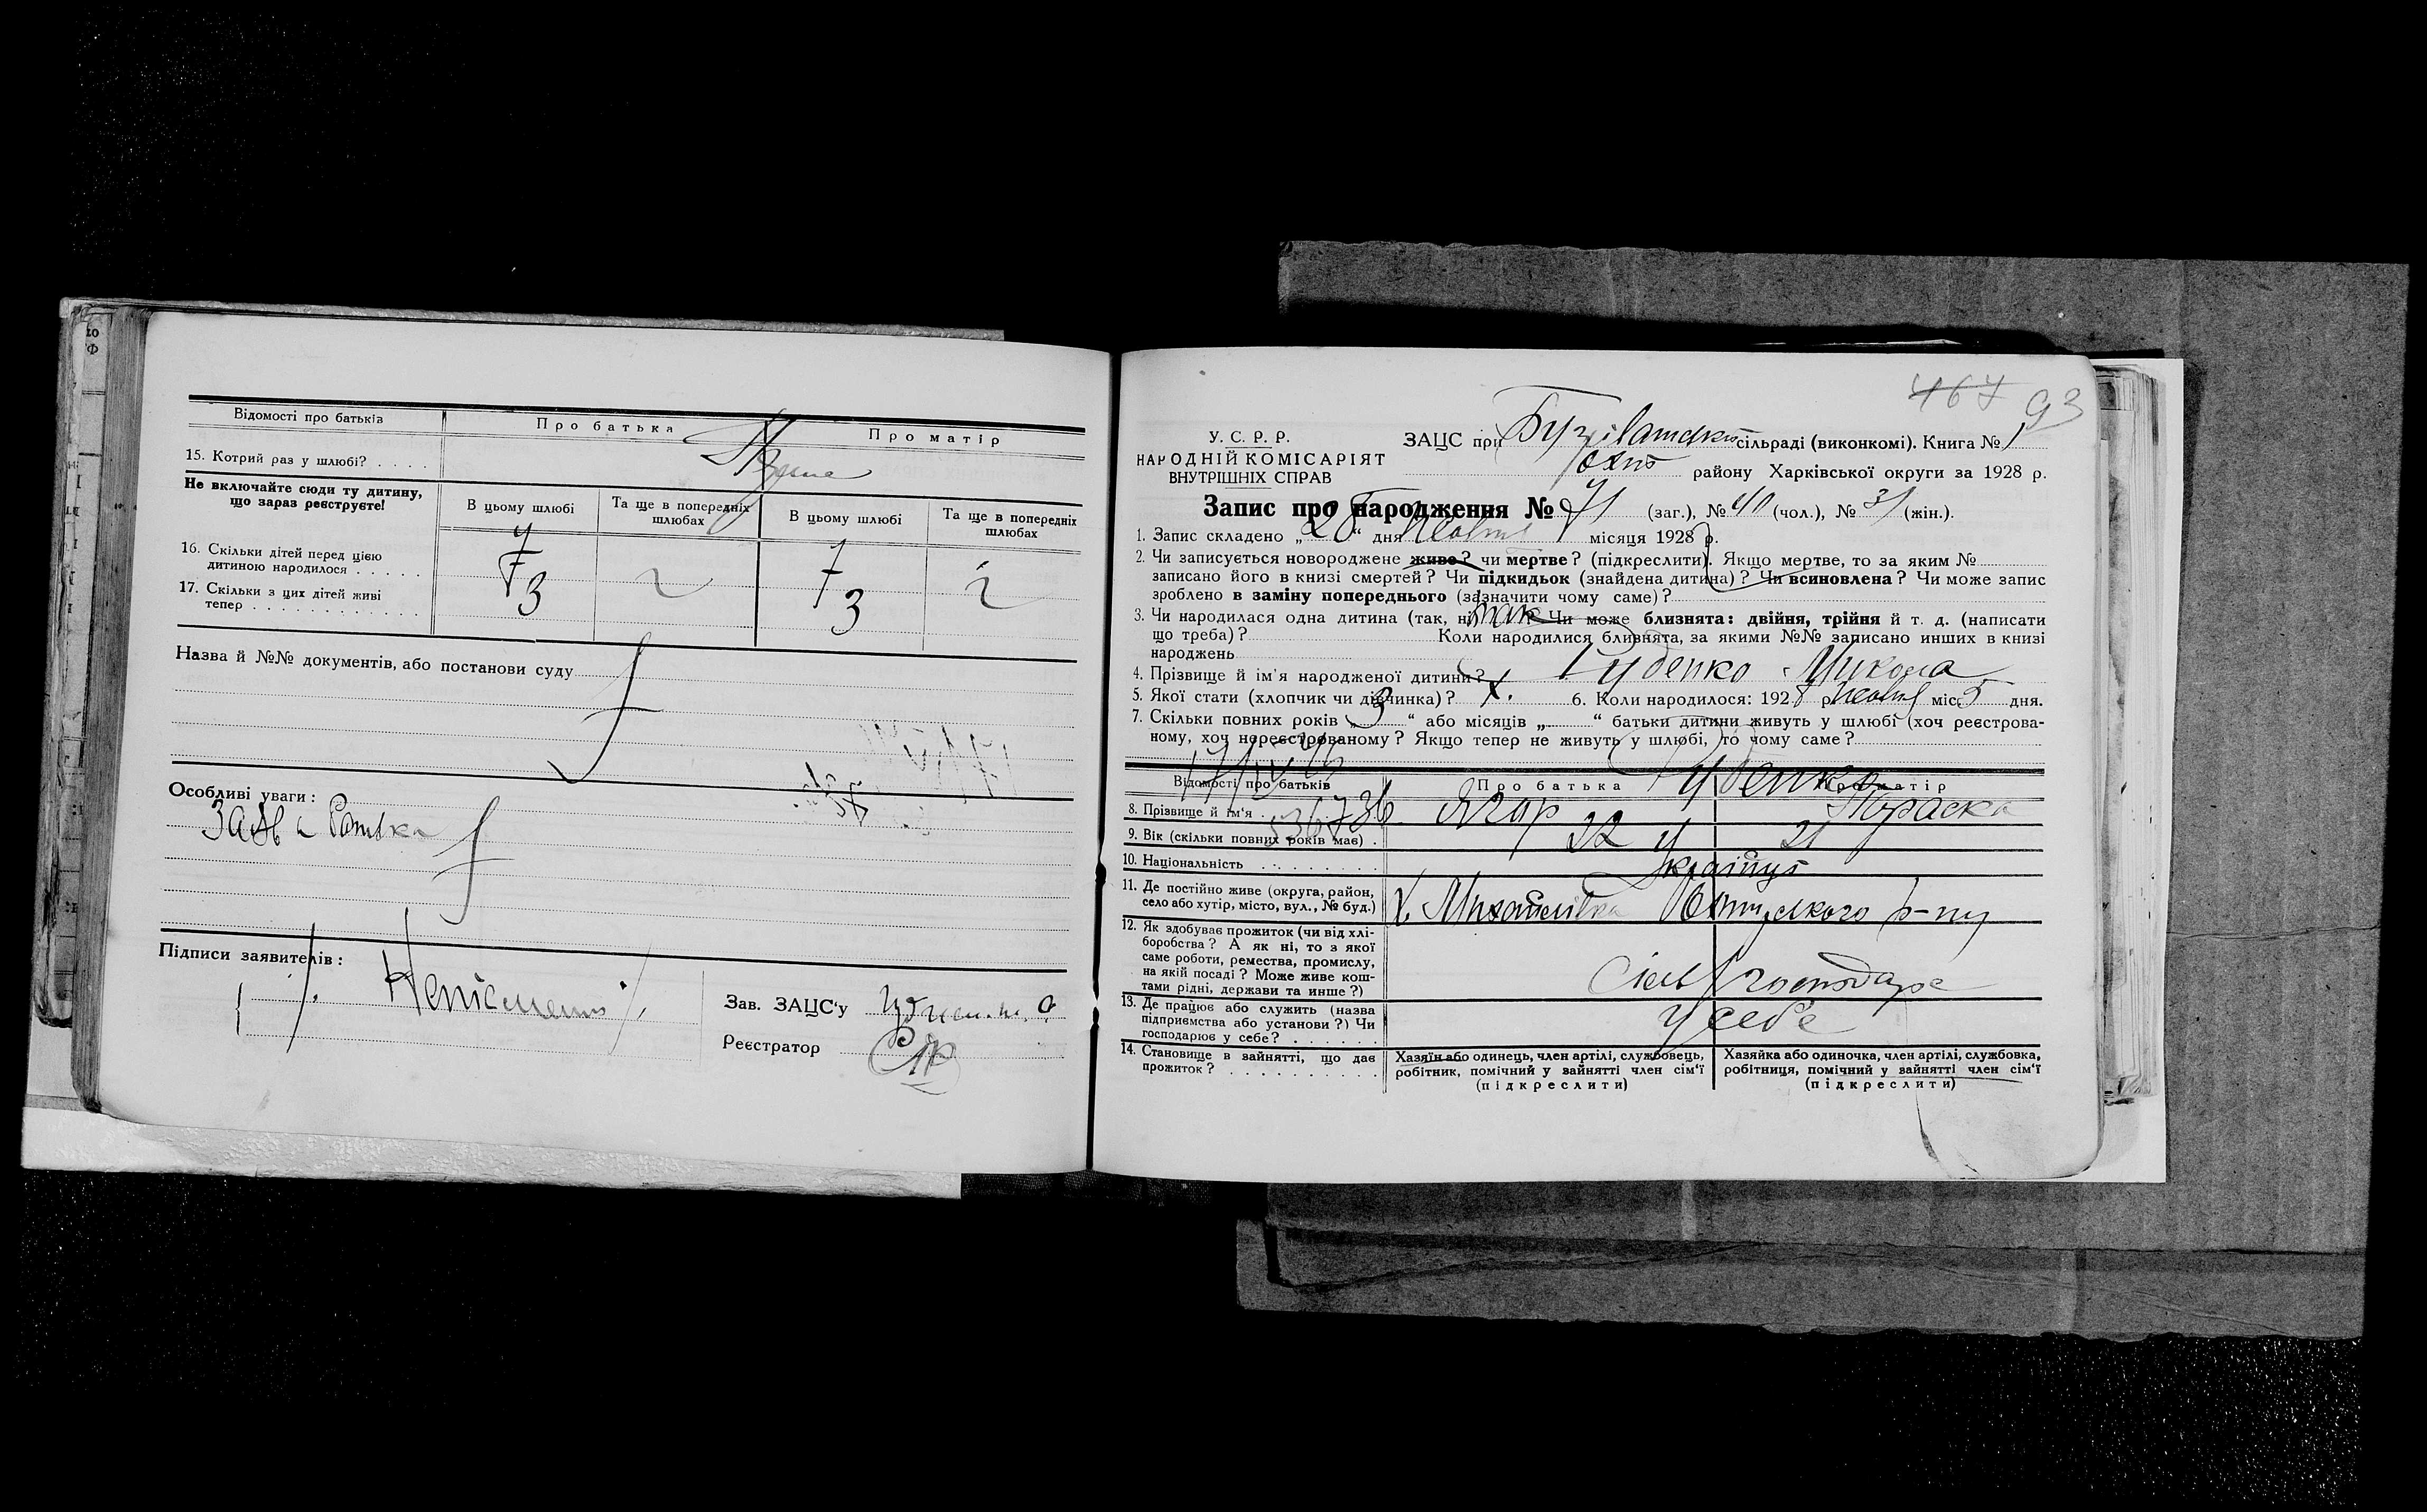 Відомості про батьків
Про батька
Про матір
15. Котрий раз у шлюбі? . . . .
Не включайте сюди ту дитину,
що зараз реєструєте!
В цьому шлюбі
Та ще в попередніх
шлюбах
В цьому шлюбі
Та ще в попередніх
шлюбах
16. Скільки дітей перед цією
дитиною народилося . . . . .
17. Скільки з цих дітей живі
тепер . . . . . . . . . . . . .
3
3
Назва й №№ документів, або постанови суду
Особливі уваги:
Підписи заявителів:
Неписменні
Зав. ЗАЦС'у
Реєстратор
467 93
У. С. Р. Р.
НАРОДНІЙ КОМІСАРІЯТ
ВНУТРІШНІХ СПРАВ
ЗАЦС при сільраді (виконкомі). Книга № 1
району Харківської округи за 1928 р.
Запис про народження № 71 (заг.), № 40 (чол.), № 31 (жін.).
1. Запис складено „ “ дня Жовтня місяця 1928 р.
2. Чи записується новороджене живе? чи мертве? (підкреслити). Якщо мертве, то за яким №
записано його в книзі смертей? Чи підкидьок (знайдена дитина)? Чи всиновлена? Чи може запис
зроблено в заміну попереднього (зазначити чому саме)?
3. Чи народилася одна дитина (так, ні) так Чи може близнята: двійня, трійня й т. д. (написати
що треба)? Коли народилися близнята, за якими №№ записано инших в книзі
народжень
4. Прізвище й ім'я народженої дитини? Руденко Микола
5. Якої стати (хлопчик чи дівчинка)? х. 6. Коли народилося: 1928 р. Жовтня міс. 5 дня.
7. Скільки повних років „ 3 “ або місяців „ “ батьки дитини живуть у шлюбі (хоч реєстрова-
ному, хоч нереєстрованому? Якщо тепер не живуть у шлюбі, то чому саме?
Відомості про батьків
Про батька
Про матір
Руденко
8. Прізвище й ім'я . Ягор Параска
9. Вік (скільки повних років має) . 32
10. Національність . . . . . . . . . Українці
11. Де постійно живе (округа, район,
село або хутір, місто, вул., № буд.)
х. Михайлівка р-ну
12. Як здобуває прожиток (чи від хлі-
боробства? А як ні, то з якої
саме роботи, ремества, промислу,
на якій посаді? Може живе кош-
тами рідні, держави та инше?)
13. Де працює або служить (назва
підприємства або установи?) Чи
господарює у себе? . . . . . .
У себе
14. Становище в зайнятті, що дає
прожиток? . . . . . . . . . . .
Хазяїн або одинець, член артілі, службовець,
робітник, помічний у зайнятті член сім'ї
(підкреслити)
Хазяйка або одиночка, член артілі, службовка,
робітниця, помічний у зайнятті член сім'ї
(підкреслити)